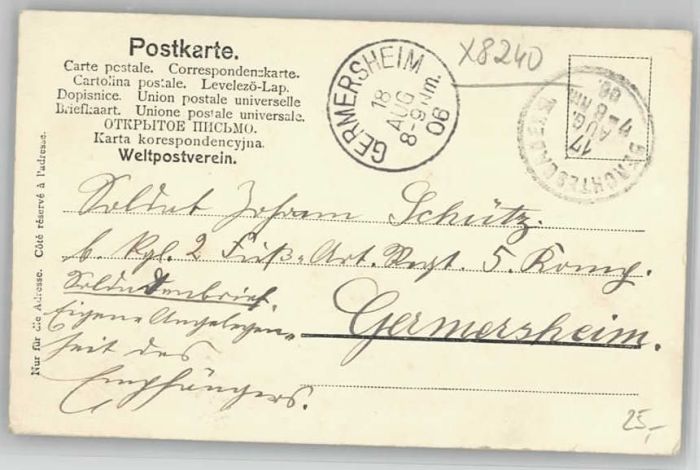 Postkarte.
Carte postale. Correspondenzkarte.
Cartolina postale. Levelező-Lap.
Dopisnice. Union postale universelle
Briefkaart. Unione postale universale.
ОТКРЫТОЕ ПИСЬМО.
Karta korespondencyjna.
Weltpostverein.
GERMERSHEIM
18
AUG
8-9 Nm.
06
X8240
BERCHTESGADEN
17
AUG.
7-8 NM
06
Nur für die Adresse. Côté réservé à l'adresse.
Soldat Johann Schütz.
b. Kgl. 2 Fuß-Art. Regt. 5. Komp.
Soldatenbrief.
Eigene Angelegen-
Germersheim.
heit des
Empfängers.
25,-